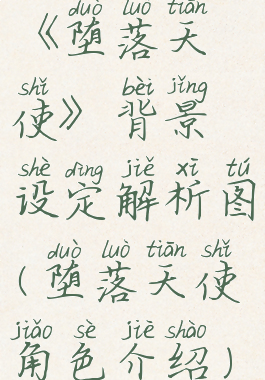 duò luò tiān
《堕落天
shǐ bèi jǐng
使》 背景
shè dìng jiě xī tú
设定解析图
duò luò tiān shǐ
(堕落天使
jiǎo sè jiè shào
角色介绍)